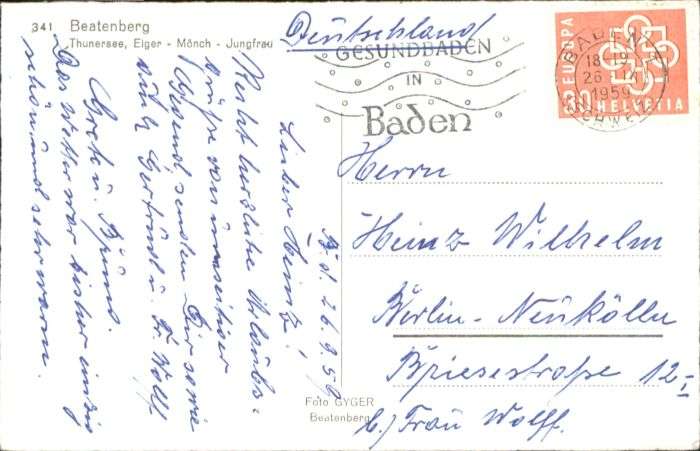 341 Beatenberg
Thunersee, Eiger - Mönch - Jungfrau
Deutschland
GESUNDBADEN
IN
Baden
EUROPA
30 HELVETIA
BADEN
18-19
26. IX
1959
(SCHWEIZ)
B. d. 26.9.59
Lieber Heinz!
Recht herzliche Urlaubs-
grüße von unserer
Gegend, senden Dir sowie
auch Gertrud u. Fr. Wolff
Grete u. Bruno.
Das Wetter war bisher einzig
schön und sehr warm.
Herrn
Heinz Wilhelm
Berlin-Neukölln
Briesestraße 12 I
b/ Frau Wolff.
Foto GYGER
Beatenberg